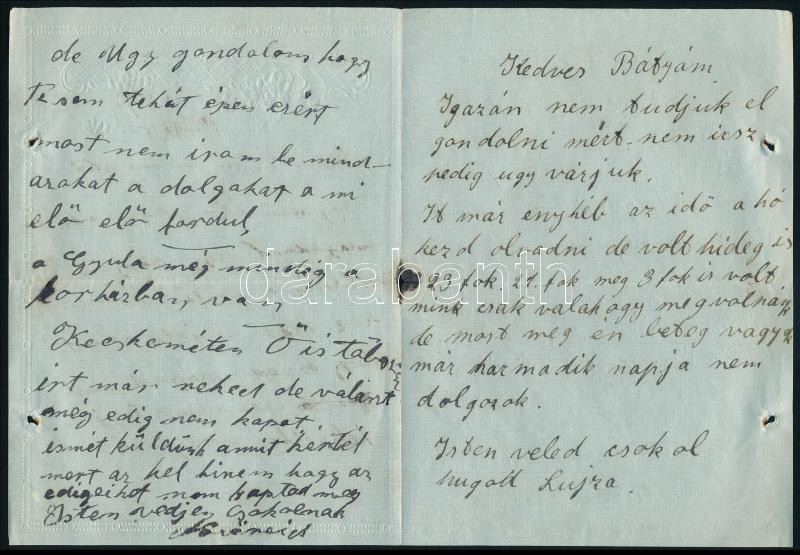 de Ugy gondolom hogy
Te sem tehát épen ezért
most nem irom be mind-
azokat a dolgokat a mi
elö elö fordul,
a Gyula még mindég a
korházban van
Kecskeméten Ő is tábori
irt már neked de választ
még edig nem kapot
ismét küldünk amit kértél
mert az kel hinem hogy az
edigieket nem kaptad meg
Isten védjen Csokolnak
Kedves Bátyám
Igazán nem tudjuk el
gondolni mért nem irsz
pedig ugy várjuk.
It már enyhéb az idö a hó
kezd olvadni de volt hideg is
23 fok. 21. fok meg 3 fok is volt
mink csak valahogy megvolnánk
de most meg én beteg vagyok
már harmadik napja nem
dolgozok.
Isten veled csokol
hugod Lujza.
darabanth